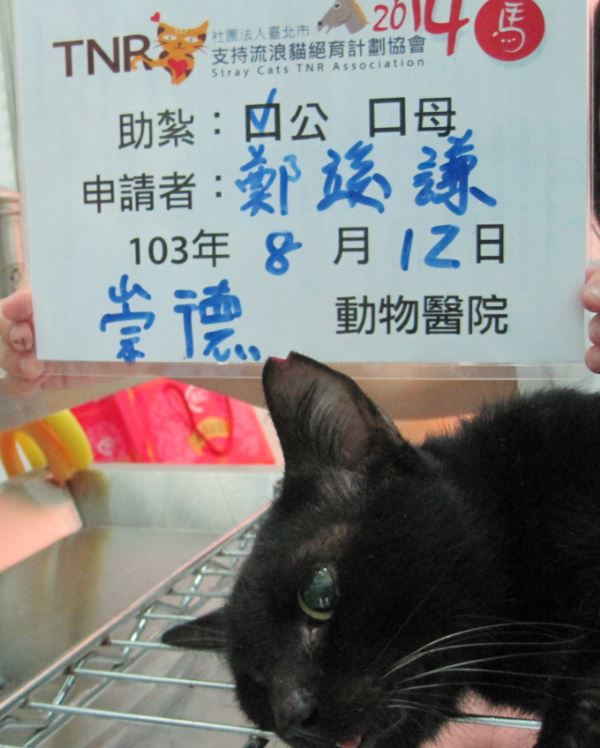 TNR 社團法人臺北市 2014 馬
支持流浪貓絕育計劃協會
Stray Cats TNR Association
助紮：口公 口母
申請者：鄭竣謙
103年 8 月 12 日
崇德 動物醫院